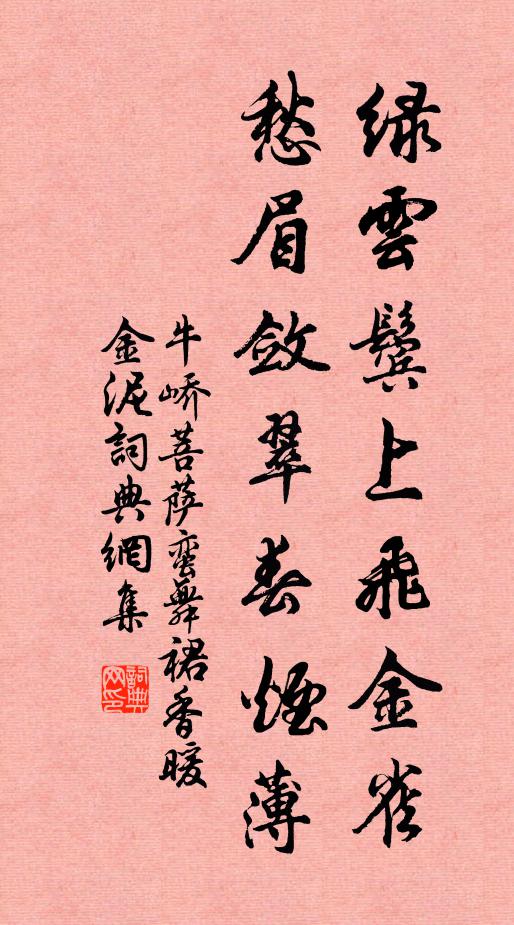 绿雲鬓上飛金雀
愁眉斂翠春煙薄
牛嶠菩萨蛮舞裙香暖
金泥詞典網集
詞典网印